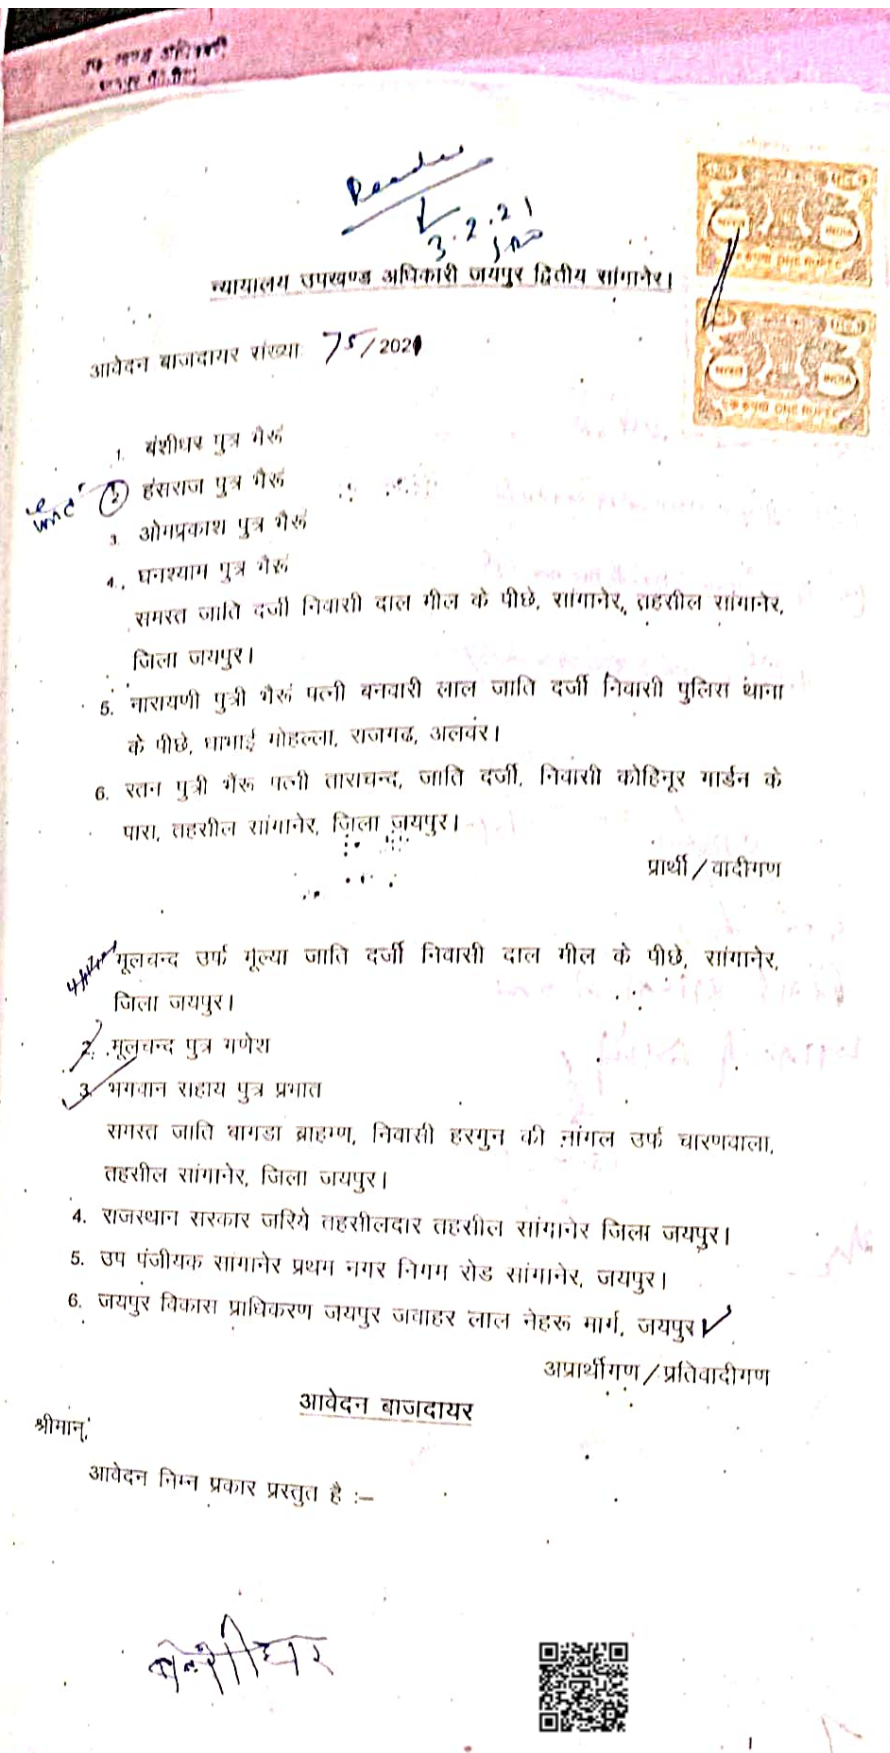 उप खण्ड अधिकारी
Reader
3.2.21
न्यायालय उपखण्ड अधिकारी जयपुर द्वितीय सांगानेर।
आवेदन बाजदायर संख्या 75/2021
1. बंशीधर पुत्र भैरूं
2 हंसराज पुत्र भैरूं
3. ओमप्रकाश पुत्र भैरूं
4. घनश्याम पुत्र भैरूं
समस्त जाति दर्जी निवासी दाल मील के पीछे, सांगानेर, तहसील सांगानेर,
जिला जयपुर।
5. नारायणी पुत्री भैरूं पत्नी बनवारी लाल जाति दर्जी निवासी पुलिस थाना
के पीछे, धाभाई मोहल्ला, राजगढ, अलवर।
6. रतन पुत्री भैरू पत्नी ताराचन्द, जाति दर्जी, निवासी कोहिनूर गार्डन के
पास, तहसील सांगानेर, जिला जयपुर।
प्रार्थी/वादीगण
मूलचन्द उर्फ मूल्या जाति दर्जी निवासी दाल मील के पीछे, सांगानेर,
जिला जयपुर।
2. मूलचन्द पुत्र गणेश
3. भगवान सहाय पुत्र प्रभात
समस्त जाति बागडा ब्राहम्ण, निवासी हरगुन की नांगल उर्फ चारणवाला,
तहसील सांगानेर, जिला जयपुर।
4. राजस्थान सरकार जरिये तहसीलदार तहसील सांगानेर जिला जयपुर।
5. उप पंजीयक सांगानेर प्रथम नगर निगम रोड सांगानेर, जयपुर।
6. जयपुर विकास प्राधिकरण जयपुर जवाहर लाल नेहरू मार्ग, जयपुर
अप्रार्थीगण/प्रतिवादीगण
आवेदन बाजदायर
श्रीमान्,
आवेदन निम्न प्रकार प्रस्तुत है :–
बंशीधर
1